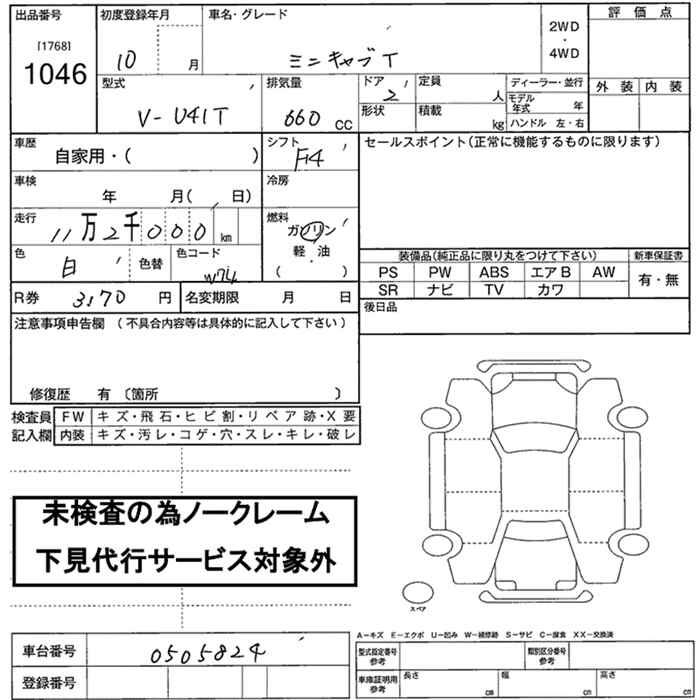 出品番号 初度登録年月 車名・グレード 2WD・4WD 評価点
[1768]
1046 10 月 ミニキャブT
外装 内装
型式 排気量 ドア 定員 人 ディーラー・並行
V-U41T 660 CC 2 形状 積載 kg モデル年式 年
ハンドル 左・右
車歴 自家用・( ) シフト F4 セールスポイント(正常に機能するものに限ります)
車検 年 月( 日) 冷房
走行 11万2千000 km 燃料 ガソリン
軽・油
( )
色 白 色替 色コード W74
装備品(純正品に限り丸をつけて下さい) 新車保証書
PS PW ABS エアB AW 有・無
SR ナビ TV カワ
R券 3170 円 名変期限 月 日 後日品
注意事項申告欄 (不具合内容等は具体的に記入して下さい)
修復歴 有 〔箇所 〕
検査員 FW キズ・飛石・ヒビ割・リペア跡・X要
記入欄 内装 キズ・汚レ・コゲ・穴・スレ・キレ・破レ
未検査の為ノークレーム
下見代行サービス対象外
スペア
A-キズ E-エクボ U-凹み W-補修跡 S-サビ C-腐食 XX-交換済
車台番号 0505824 型式指定番号参考 類別区分番号参考
登録番号 車庫証明用参考 長さ cm 幅 cm 高さ cm